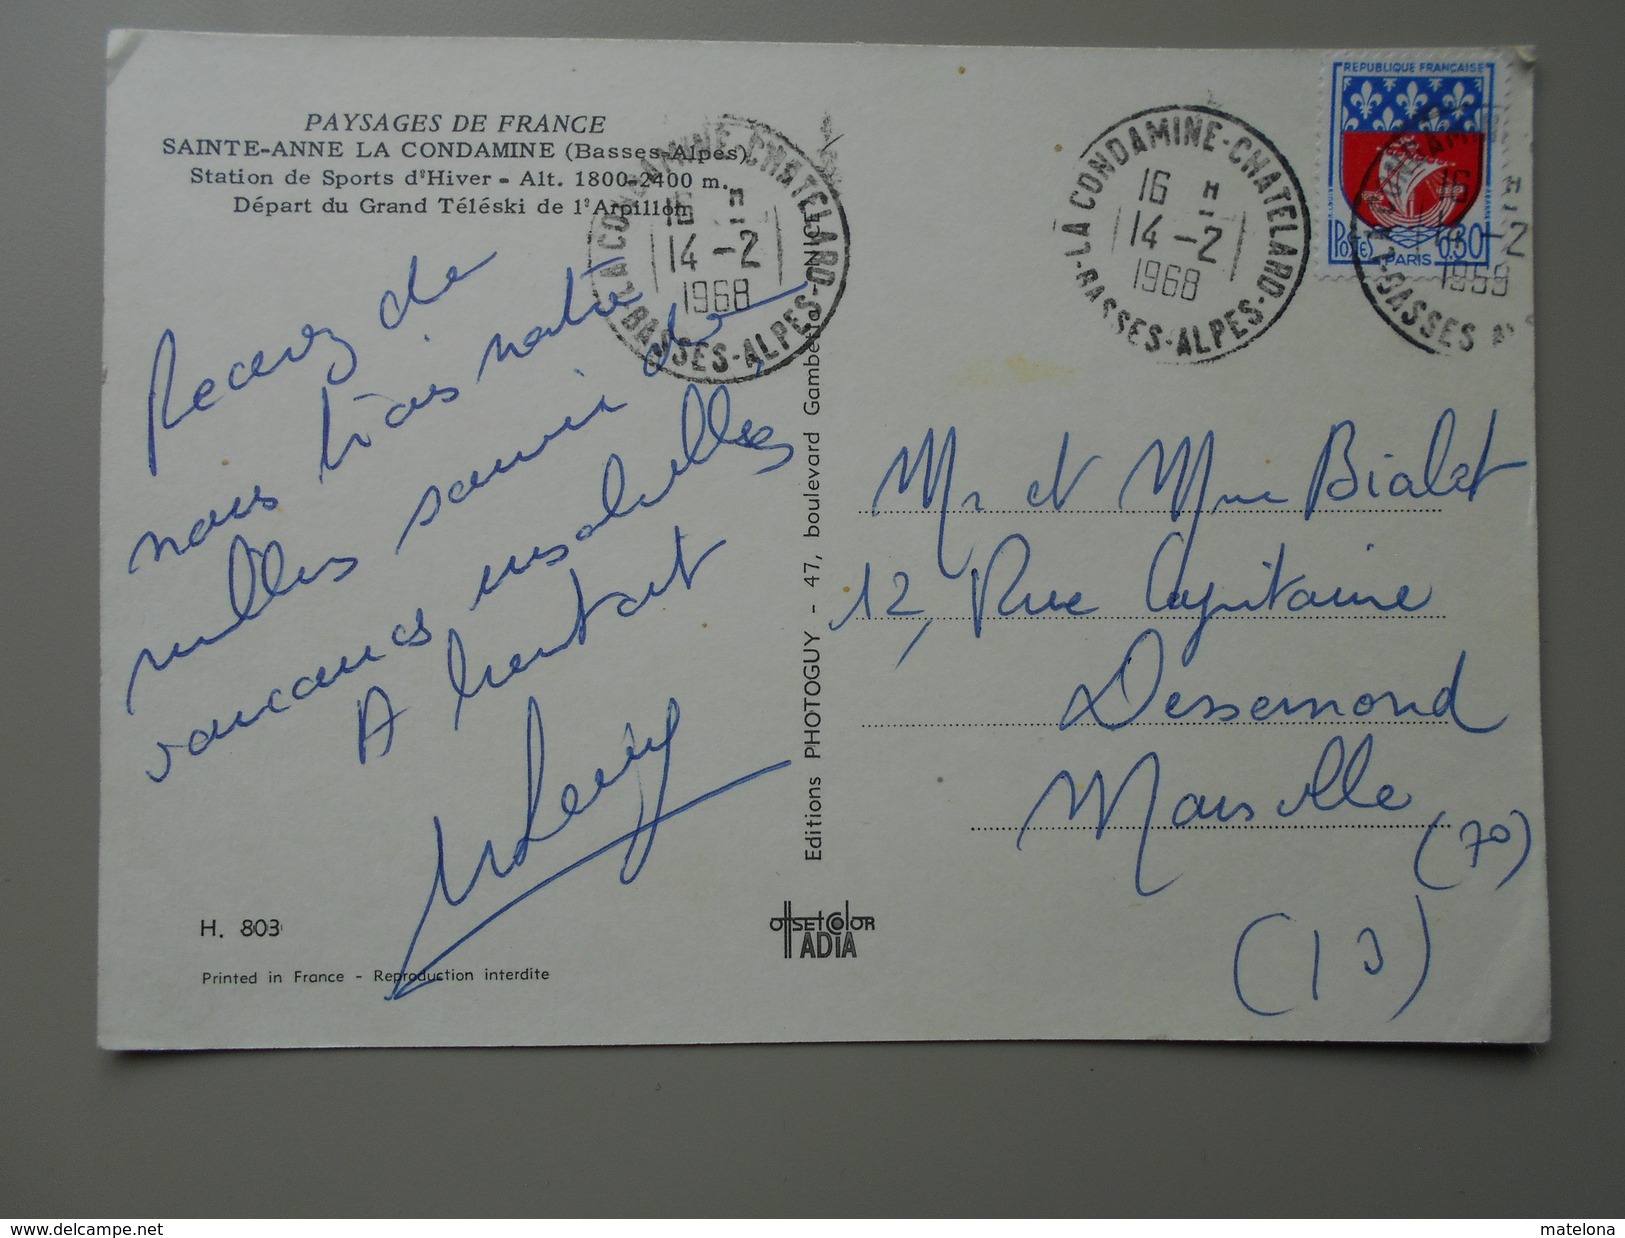 PAYSAGES DE FRANCE
SAINTE-ANNE LA CONDAMINE (Basses-Alpes)
Station de Sports d'Hiver - Alt. 1800-2400 m.
Départ du Grand Téléski de l'Arpillon
LA CONDAMINE-CHATELARD
BASSES-ALPES
16 H
14-2
1968
LA CONDAMINE-CHATELARD
BASSES-ALPES
16 H
14-2
1968
REPUBLIQUE FRANÇAISE
POSTES
PARIS
0,30
16 H
14-2
1968
BASSES
Recevez de
nous trois notre
meilleur souvenir de
vacances ensoleillées
A bientôt
Editions PHOTOGUY - 47, boulevard Gambetta - NICE
Mr et Mme Bialet
12, Rue Capitaine
Dessemond
Marseille
(7°)
(13)
H. 803
OffSET COlOR
ADIA
Printed in France - Reproduction interdite
www.delcampe.net
matelona